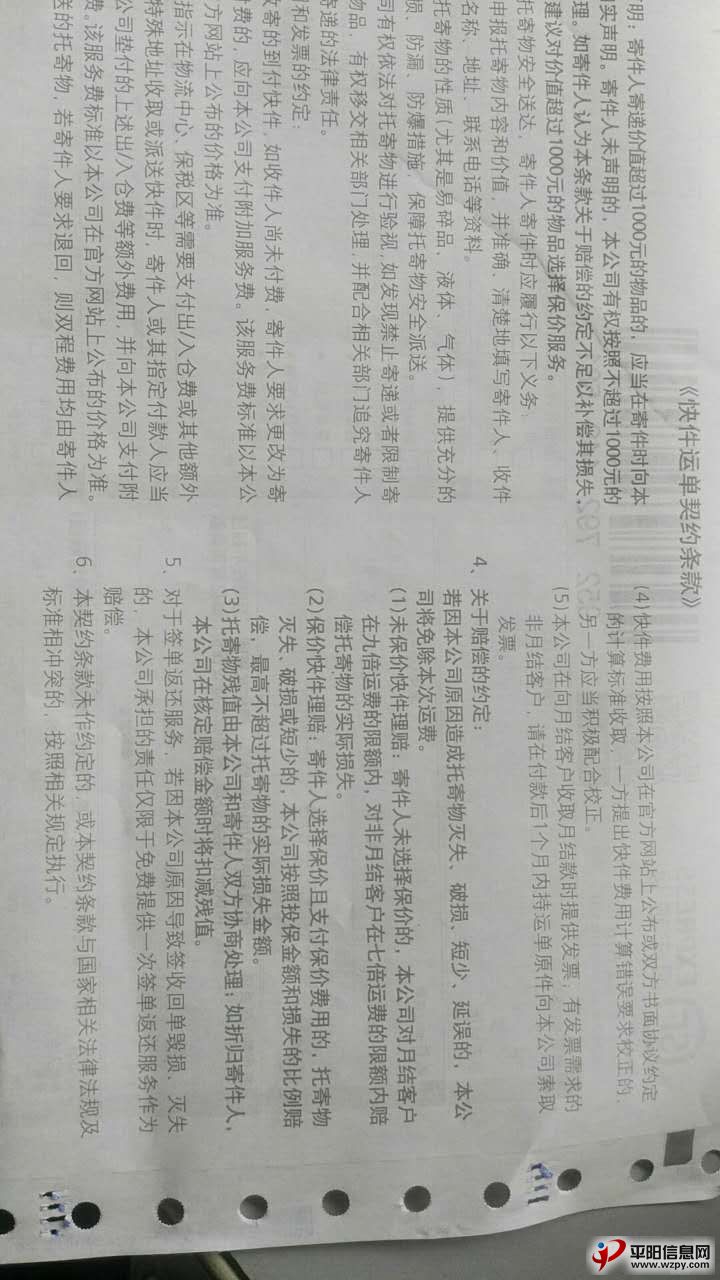 《快件运单契约条款》
明：寄件人寄递价值超过1000元的物品的，应当在寄件时向本
实声明。寄件人未声明的，本公司有权按照不超过1000元的
理。如寄件人认为本条款关于赔偿的约定不足以补偿其损失，
建议对价值超过1000元的物品选择保价服务。
托寄物安全送达，寄件人寄件时应履行以下义务：
申报托寄物内容和价值，并准确、清楚地填写寄件人、收件
名称、地址、联系电话等资料。
托寄物的性质（尤其是易碎品、液体、气体），提供充分的
损、防漏、防爆措施，保障托寄物安全派送。
司有权依法对托寄物进行验视，如发现禁止寄递或者限制寄
物品，有权移交相关部门处理，并配合相关部门追究寄件人
寄递的法律责任。
和发票的约定：
收寄的到付快件，如收件人尚未付费，寄件人要求更改为寄
付费的，应向本公司支付附加服务费。该服务费标准以本公
方网站上公布的价格为准。
指示在物流中心、保税区等需要支付出/入仓费或其他额外
特殊地址收取或派送快件时，寄件人或其指定付款人应当
公司垫付的上述出/入仓费等额外费用，并向本公司支付附
费。该服务费标准以本公司在官方网站上公布的价格为准。
送的托寄物，若寄件人要求退回，则双程费用均由寄件人
(4)快件费用按照本公司在官方网站上公布或双方书面协议约定
的计算标准收取，一方提出快件费用计算错误要求校正的，
另一方应当积极配合校正。
(5)本公司在向月结客户收取月结款时提供发票；有发票需求的
非月结客户，请在付款后1个月内持运单原件向本公司索取
发票。
4、关于赔偿的约定：
若因本公司原因造成托寄物灭失、破损、短少、延误的，本公
司将免除本次运费。
(1)未保价快件理赔：寄件人未选择保价的，本公司对月结客户
在九倍运费的限额内，对非月结客户在七倍运费的限额内赔
偿托寄物的实际损失。
(2)保价快件理赔：寄件人选择保价且支付保价费用的，托寄物
灭失、破损或短少的，本公司按照投保金额和损失的比例赔
偿，最高不超过托寄物的实际损失金额。
(3)托寄物残值由本公司和寄件人双方协商处理；如折归寄件人，
本公司在核定赔偿金额时将扣减残值。
5、对于签单返还服务，若因本公司原因导致签收回单毁损、灭失
的，本公司承担的责任仅限于免费提供一次签单返还服务作为
赔偿。
6、本契约条款未作约定的，或本契约条款与国家相关法律法规及
标准相冲突的，按照相关规定执行。
平阳信息网
www.wzpy.com